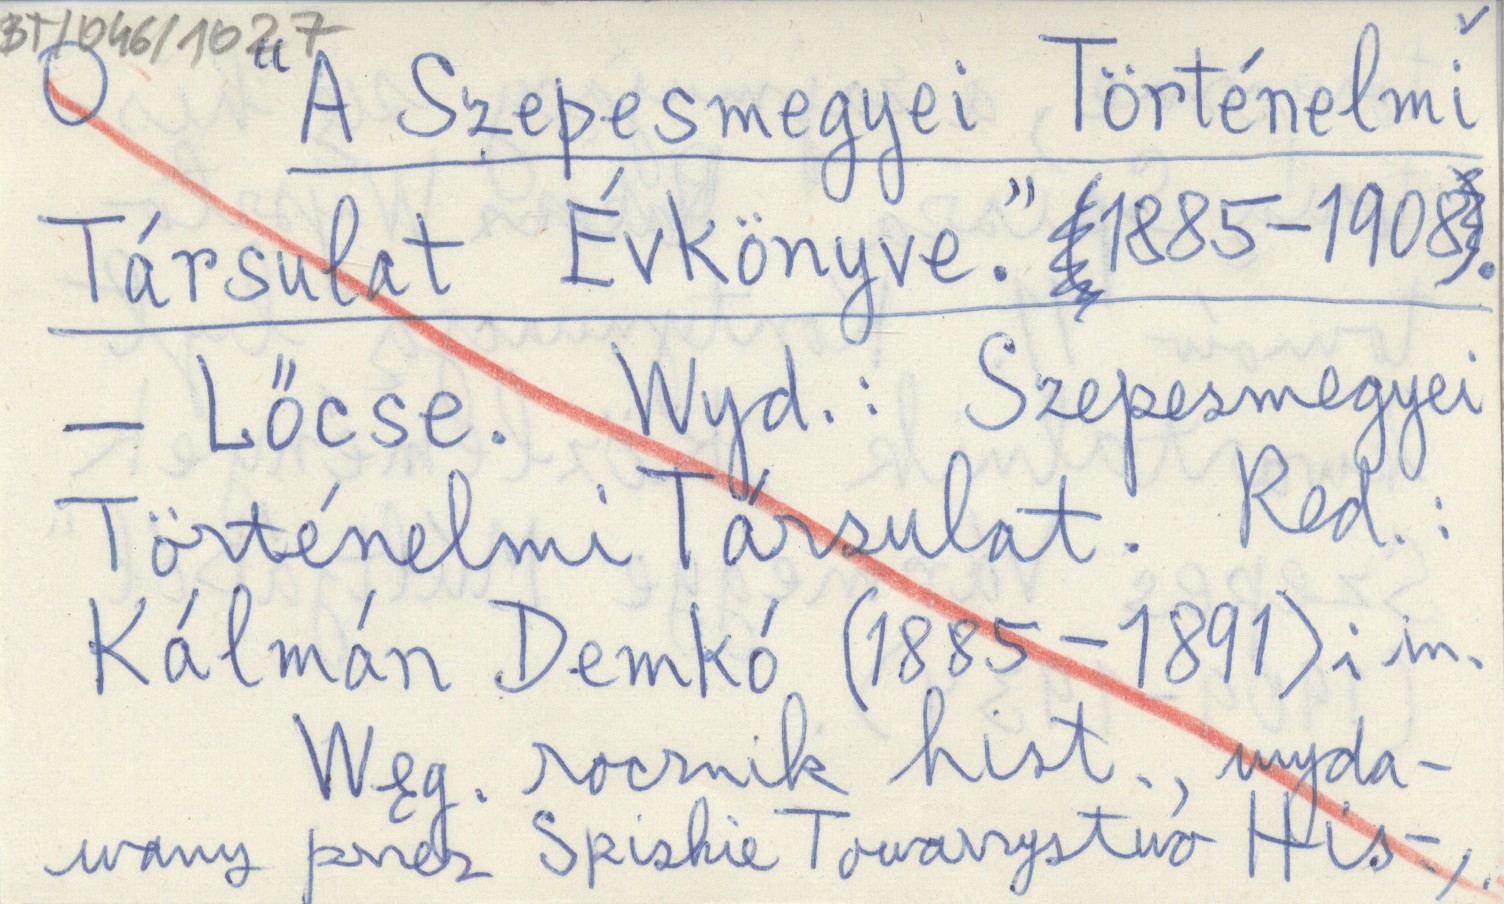 BT/046/1027
O "A Szepesmegyei Történelmi
Társulat Évkönyve." 1885-1908.
— Lőcse. Wyd.: Szepesmegyei
Történelmi Társulat. Red.:
Kálmán Demkó (1885-1891) i in.
Węg. rocznik hist., wyda-
wany przez Spiskie Towarzystwo His-